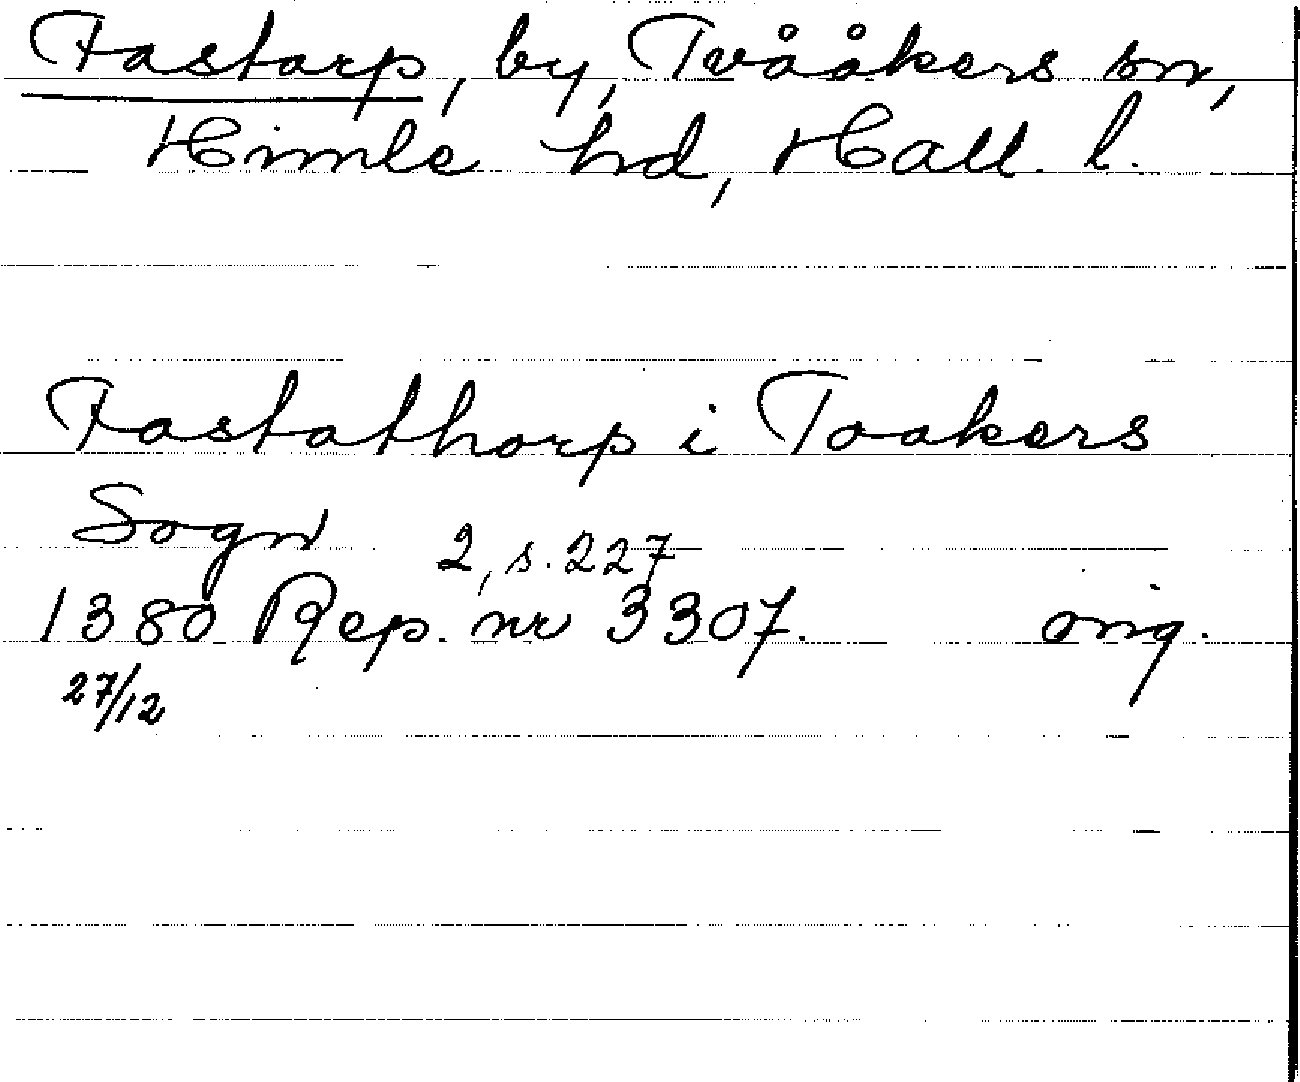 Fastarp, by, Tvååkers sn,
Himle hd, Hall. l.
Fastathorp i Toakers
Sogn
2, s. 227
1380 Rep. nr 3307. orig.
27/12